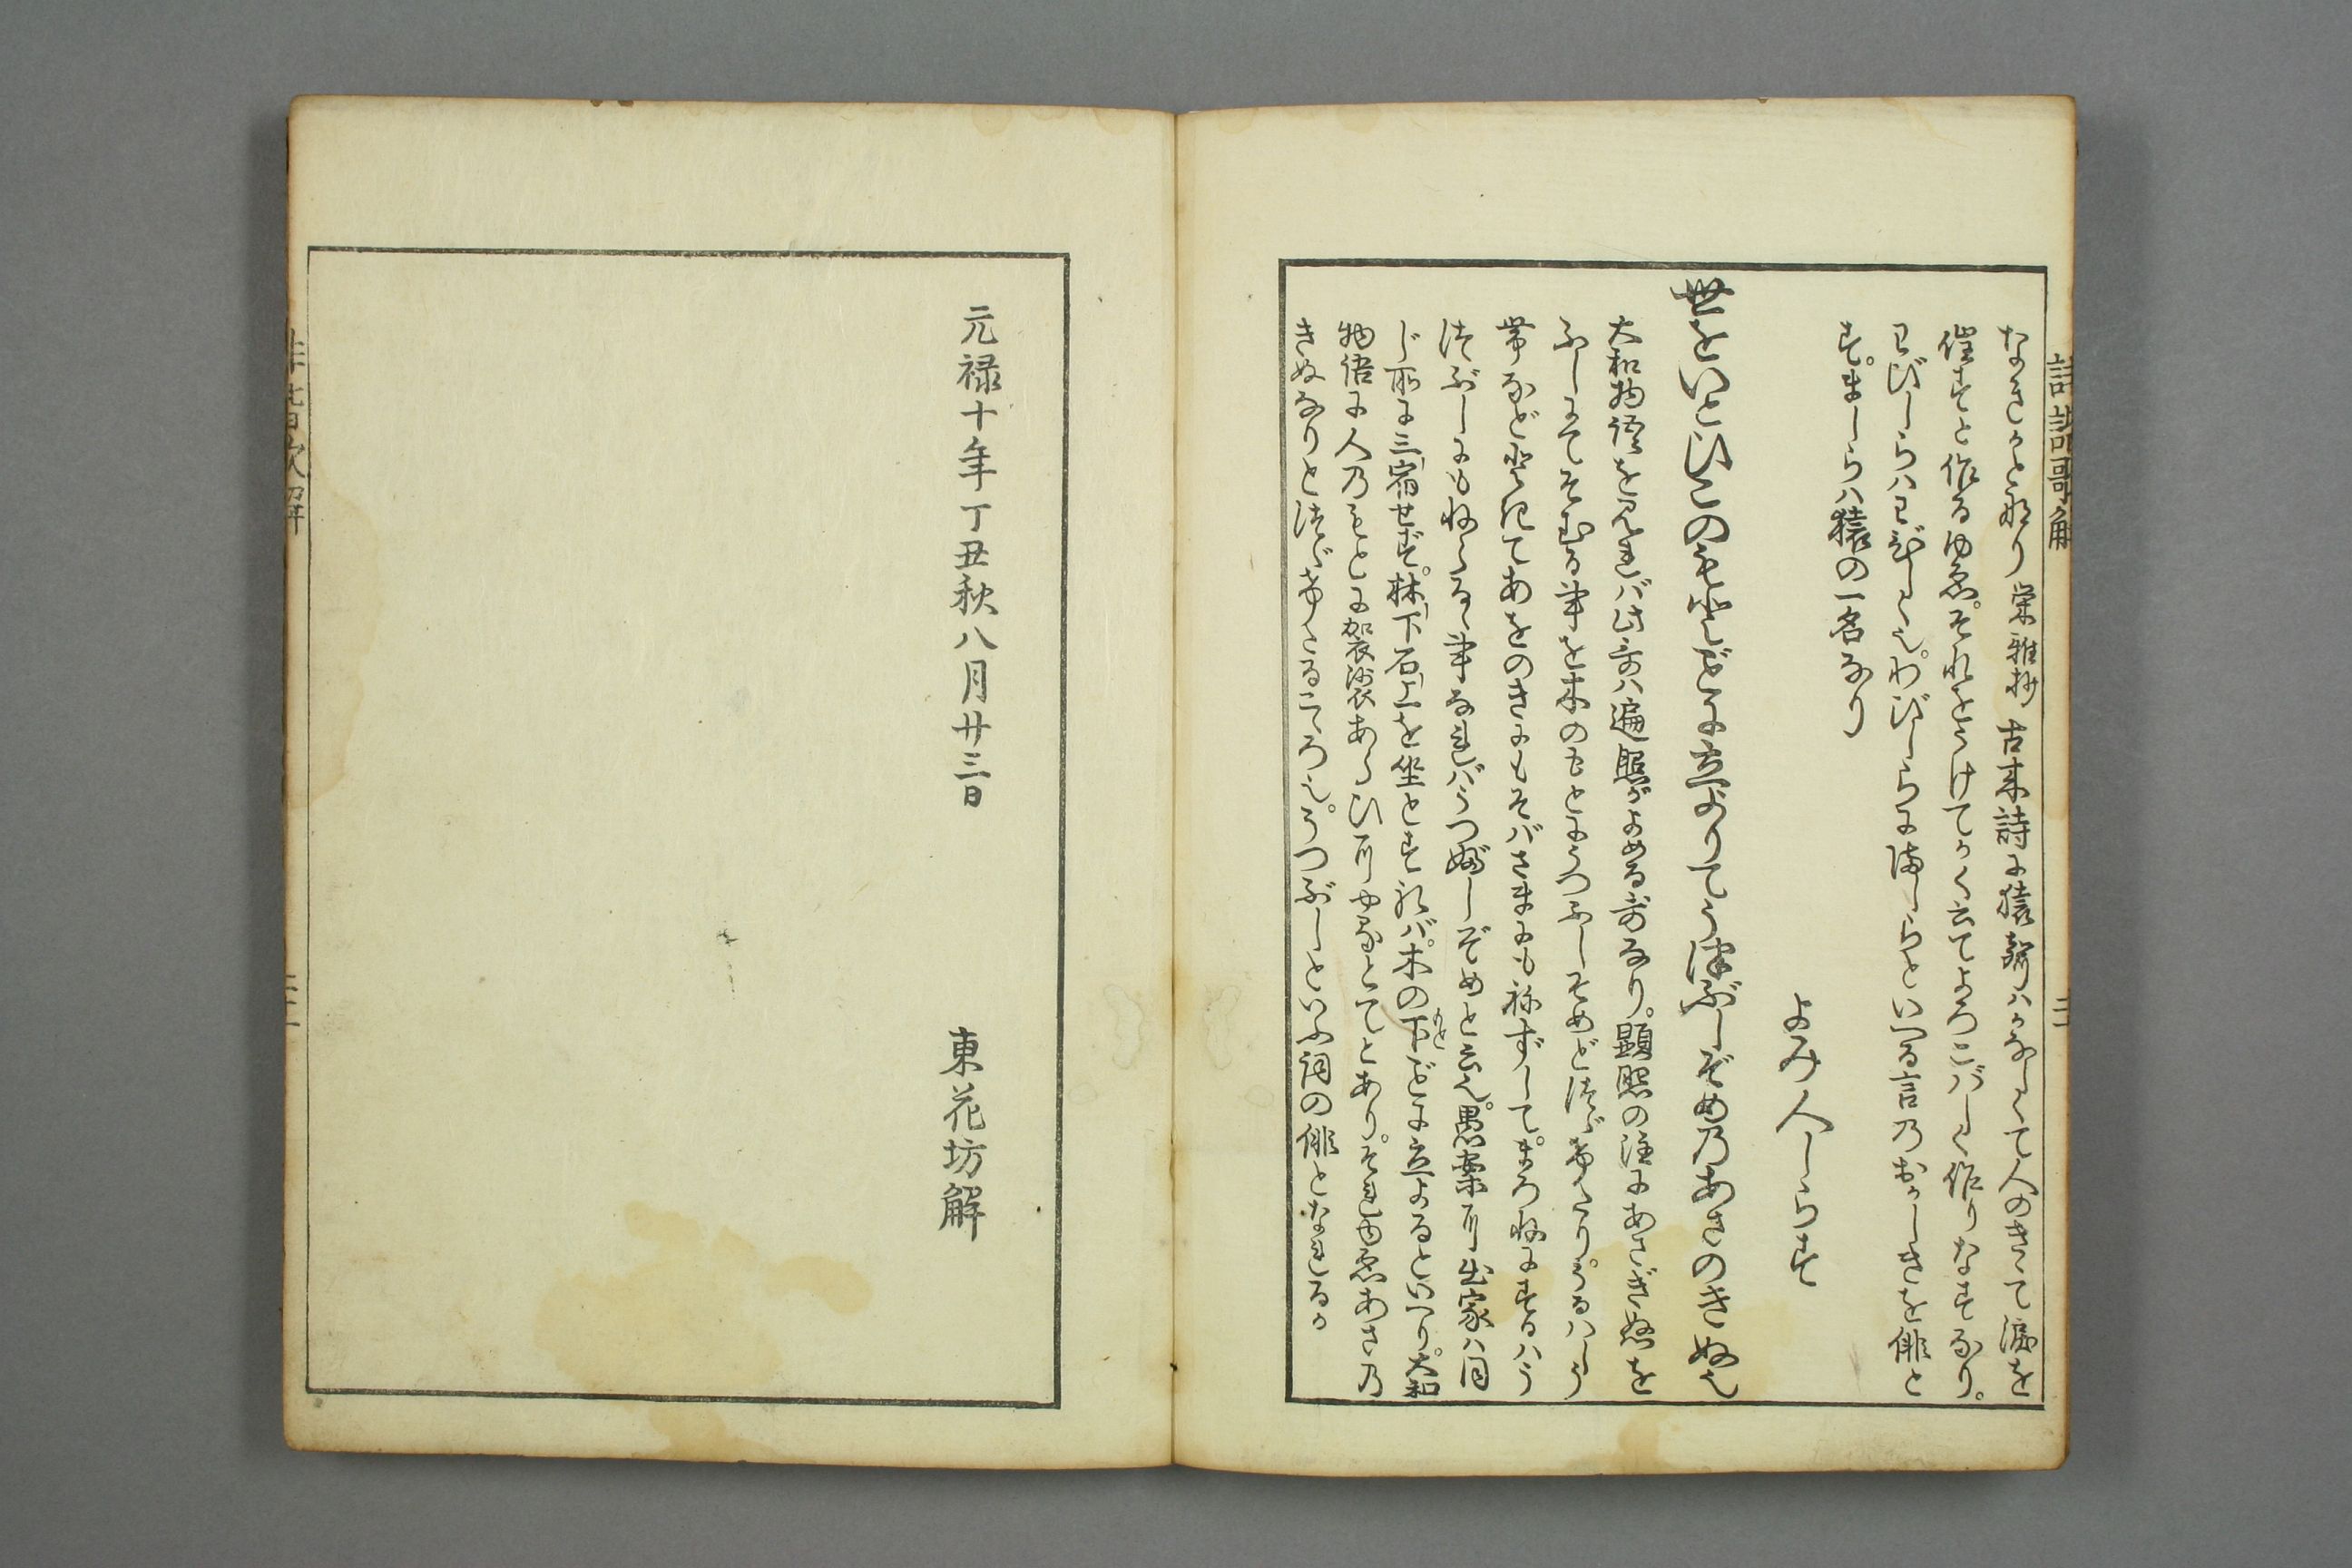 誹諧哥解
なきそと也り 栄雅抄 古来詩に猿聲ハかなしくて人のきゝて涙を
催すと作るゆゑ。それをうけてかく云てよろこバしく作りなすなり。
わびしらハわびしく也。わびしらにましらといへる言乃おかしきを俳と
す。ましらハ猿の一名なり
よみ人しらす
世をいとひこのもとごとに立よりてうつぶしぞめ乃あさのきぬ也
大和物語を見れバ此哥ハ遍照がよめる哥なり。顕照の注にあさぎぬを
ふしにてそむる事を木のもとにうつふしそめとつゞけたり。うるハしう
帯などときてあをのきにもそバさまにも祢ずして。まろねにするハう
つぶしにもねらるゝ事なれバうつぶしぞめと云也。愚案ルニ出家ハ同
じ所に三宿せず。林下石上を坐とすれバ。木の下ごとに立よるといへり。大和
物語に人乃もとに袈裟あらひニやるとてとあり。それゆゑあさ乃
きぬなりとつゞけたるこゝろ也。うつぶしといふ詞の俳となれるか
二十一
元禄十年丁丑秋八月廿三日
東花坊解